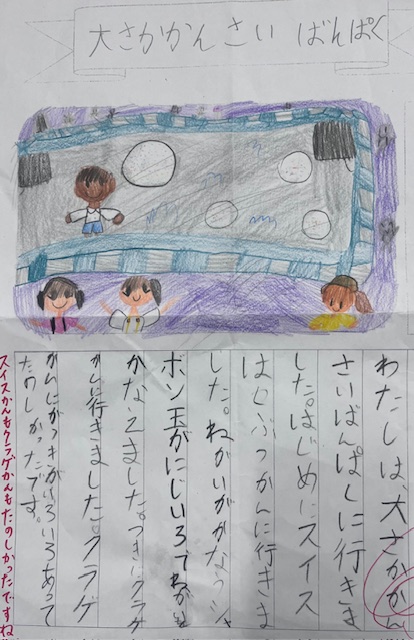 大さかかんさい ばんぱく
わたしは大さかかん
さいばんぱくに行きま
した。はじめにスイス
はくぶつかんに行きま
した。ねがいがかなうシャ
ボン玉がにじいろでねがいも
かなえました。つぎにクラゲ
かんに行きました。クラゲ
かんにがっきがいろいろあって
たのしかったです。
スイスかんもクラゲかんもたのしかったですね